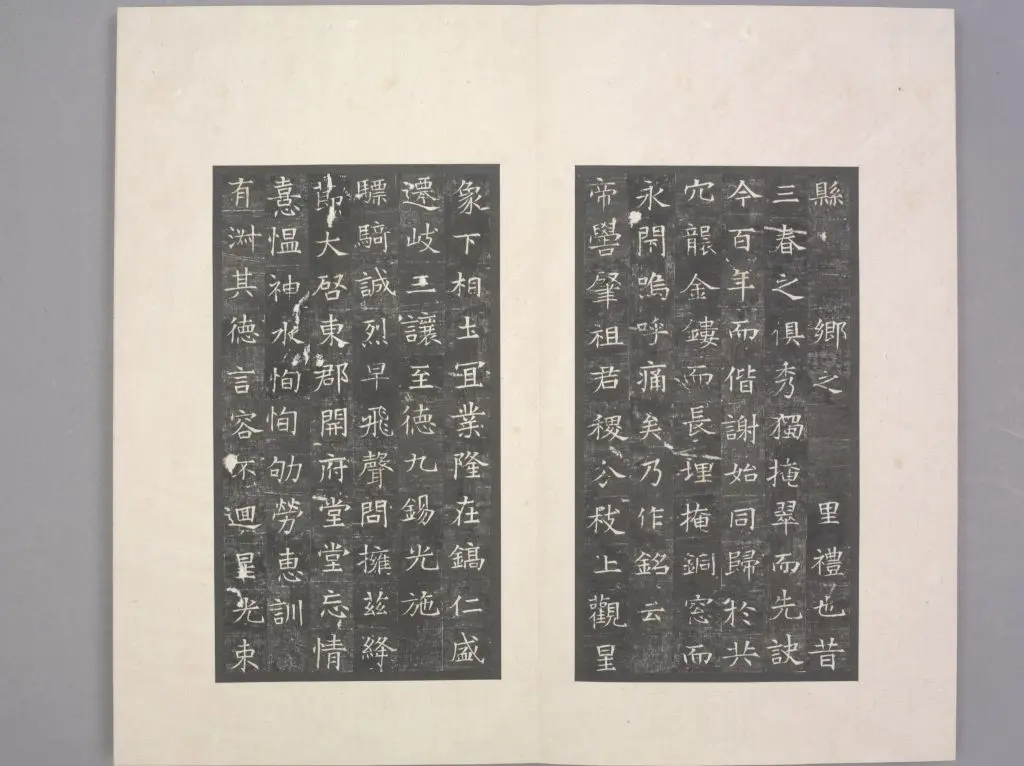 縣鄉之里禮也昔
三春之俱秀獨掩翠而先訣
今百年而偕謝始同歸於共
穴襲金鏤而長埋掩銅窓而
永閇嗚呼痛矣乃作銘云
帝嚳肇祖君稷分枝上觀星
象下相土冝業隆在鎬仁盛
遷岐三讓至德九錫光施
驃騎誠烈早飛聲問擁茲絳
節大啓東郡開府堂堂忘情
憙慍神水恂恂劬勞惠訓
有淑其德言容不迴星光束